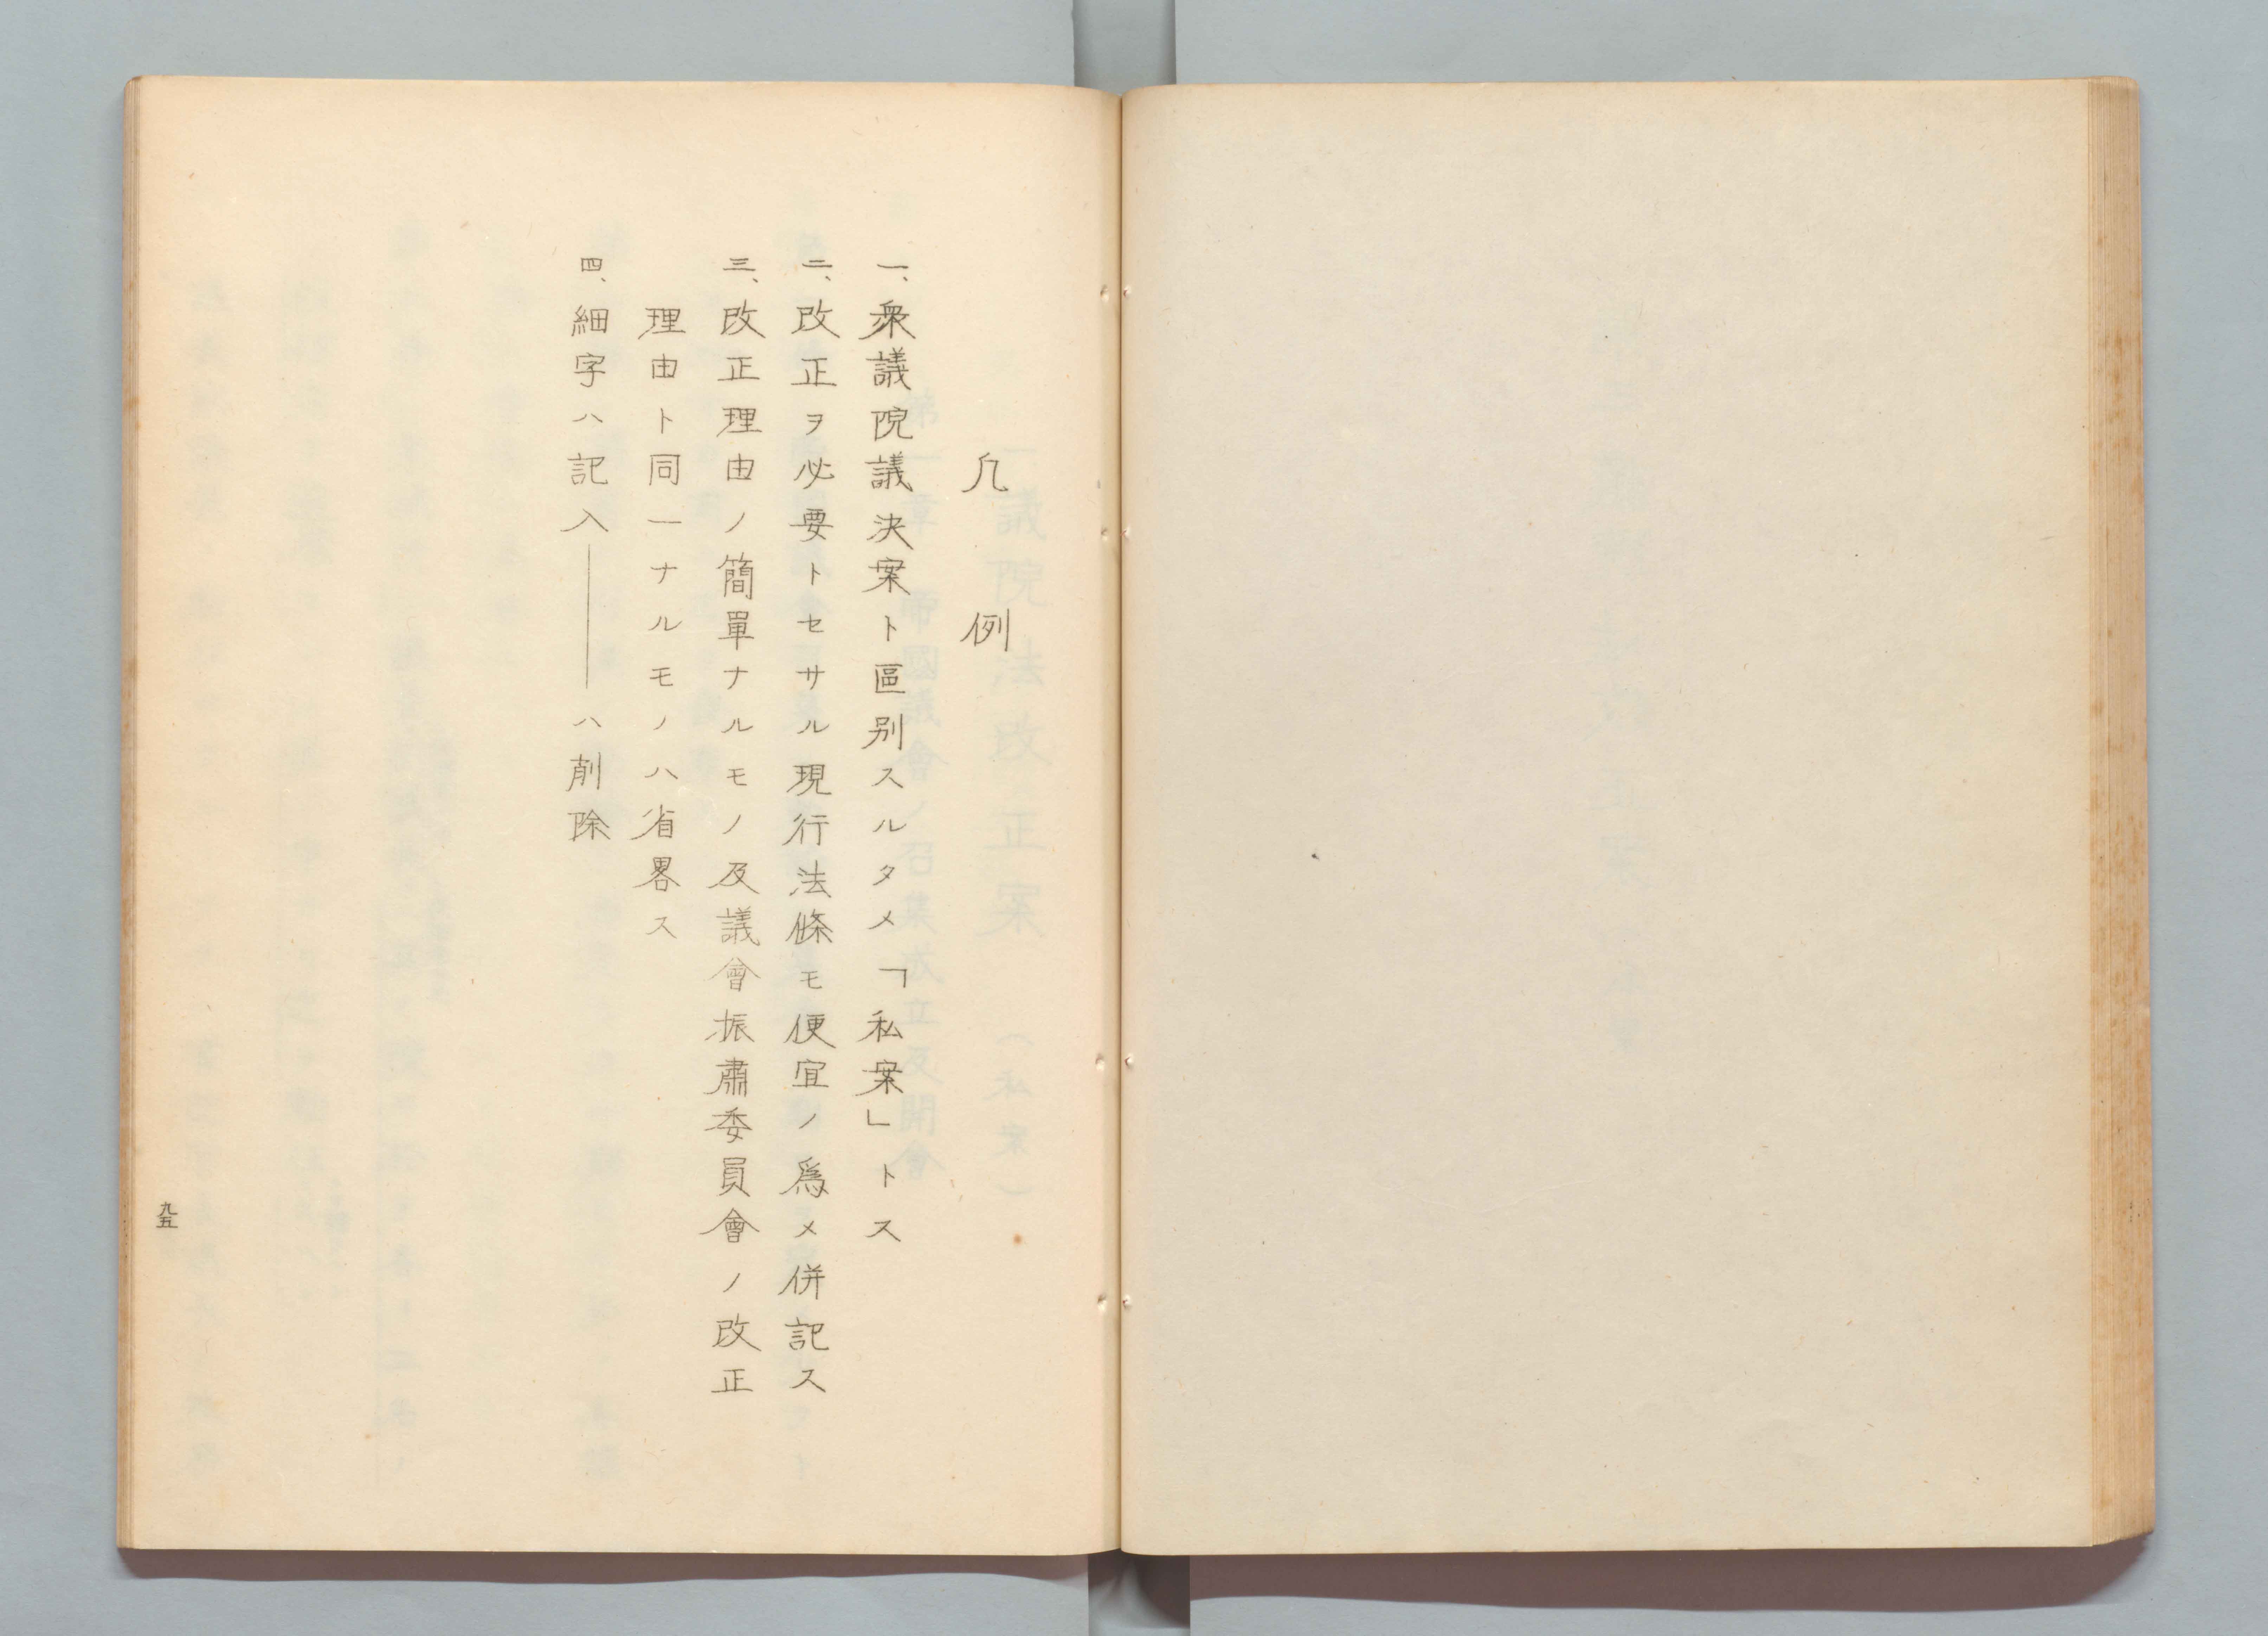 凡例
一、衆議院議決案ト區別スルタメ「私案」トス
二、改正ヲ必要トセサル現行法條モ便宜ノ爲メ併記ス
三、改正理由ノ簡單ナルモノ及議會振肅委員會ノ改正
理由ト同一ナルモノハ省畧ス
四、細字ハ記入———ハ削除
九五